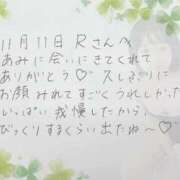 11月11日 Rさんへ
あみに会いにきてくれて
ありがとう♡ 久しぶりに
お顔みれてすごくうれしかった
いっぱい我慢したから、
びっくりするくらい出たね〜♡